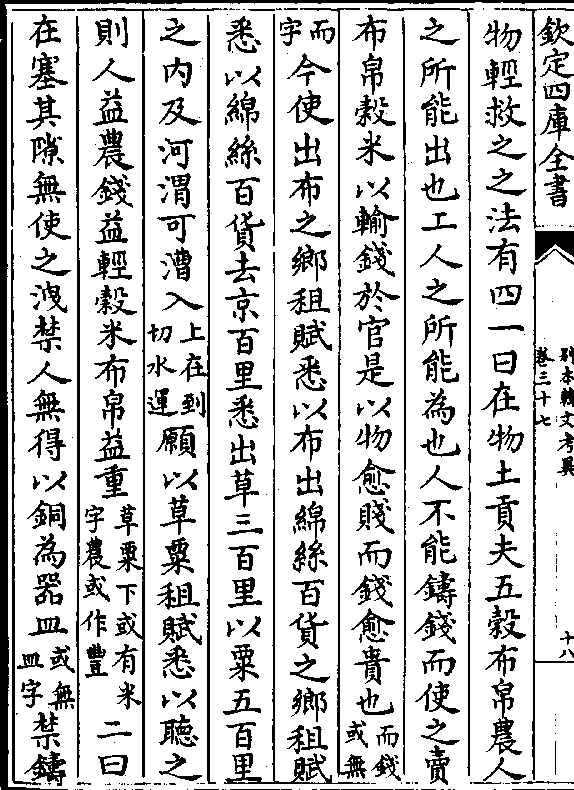 欽定四庫全書
別本韓文考異
卷三十七
十八
物輕救之之法有四一曰在物土貢夫五穀布帛農人
之所能出也工人之所能為也人不能鑄錢而使之賣
布帛穀米以輸錢於官是以物愈賤而錢愈貴也而錢或無
而字今使出布之鄉租賦悉以布出綿絲百貨之鄉租賦
悉以綿絲百貨去京百里悉出草三百里以粟五百里
之内及河渭可漕入上在到切水運願以草粟租賦悉以聽之
則人益農錢益輕穀米布帛益重草粟下或有米字農或作豐二曰
在塞其隙無使之洩禁人無得以銅為器皿或無皿字禁鑄